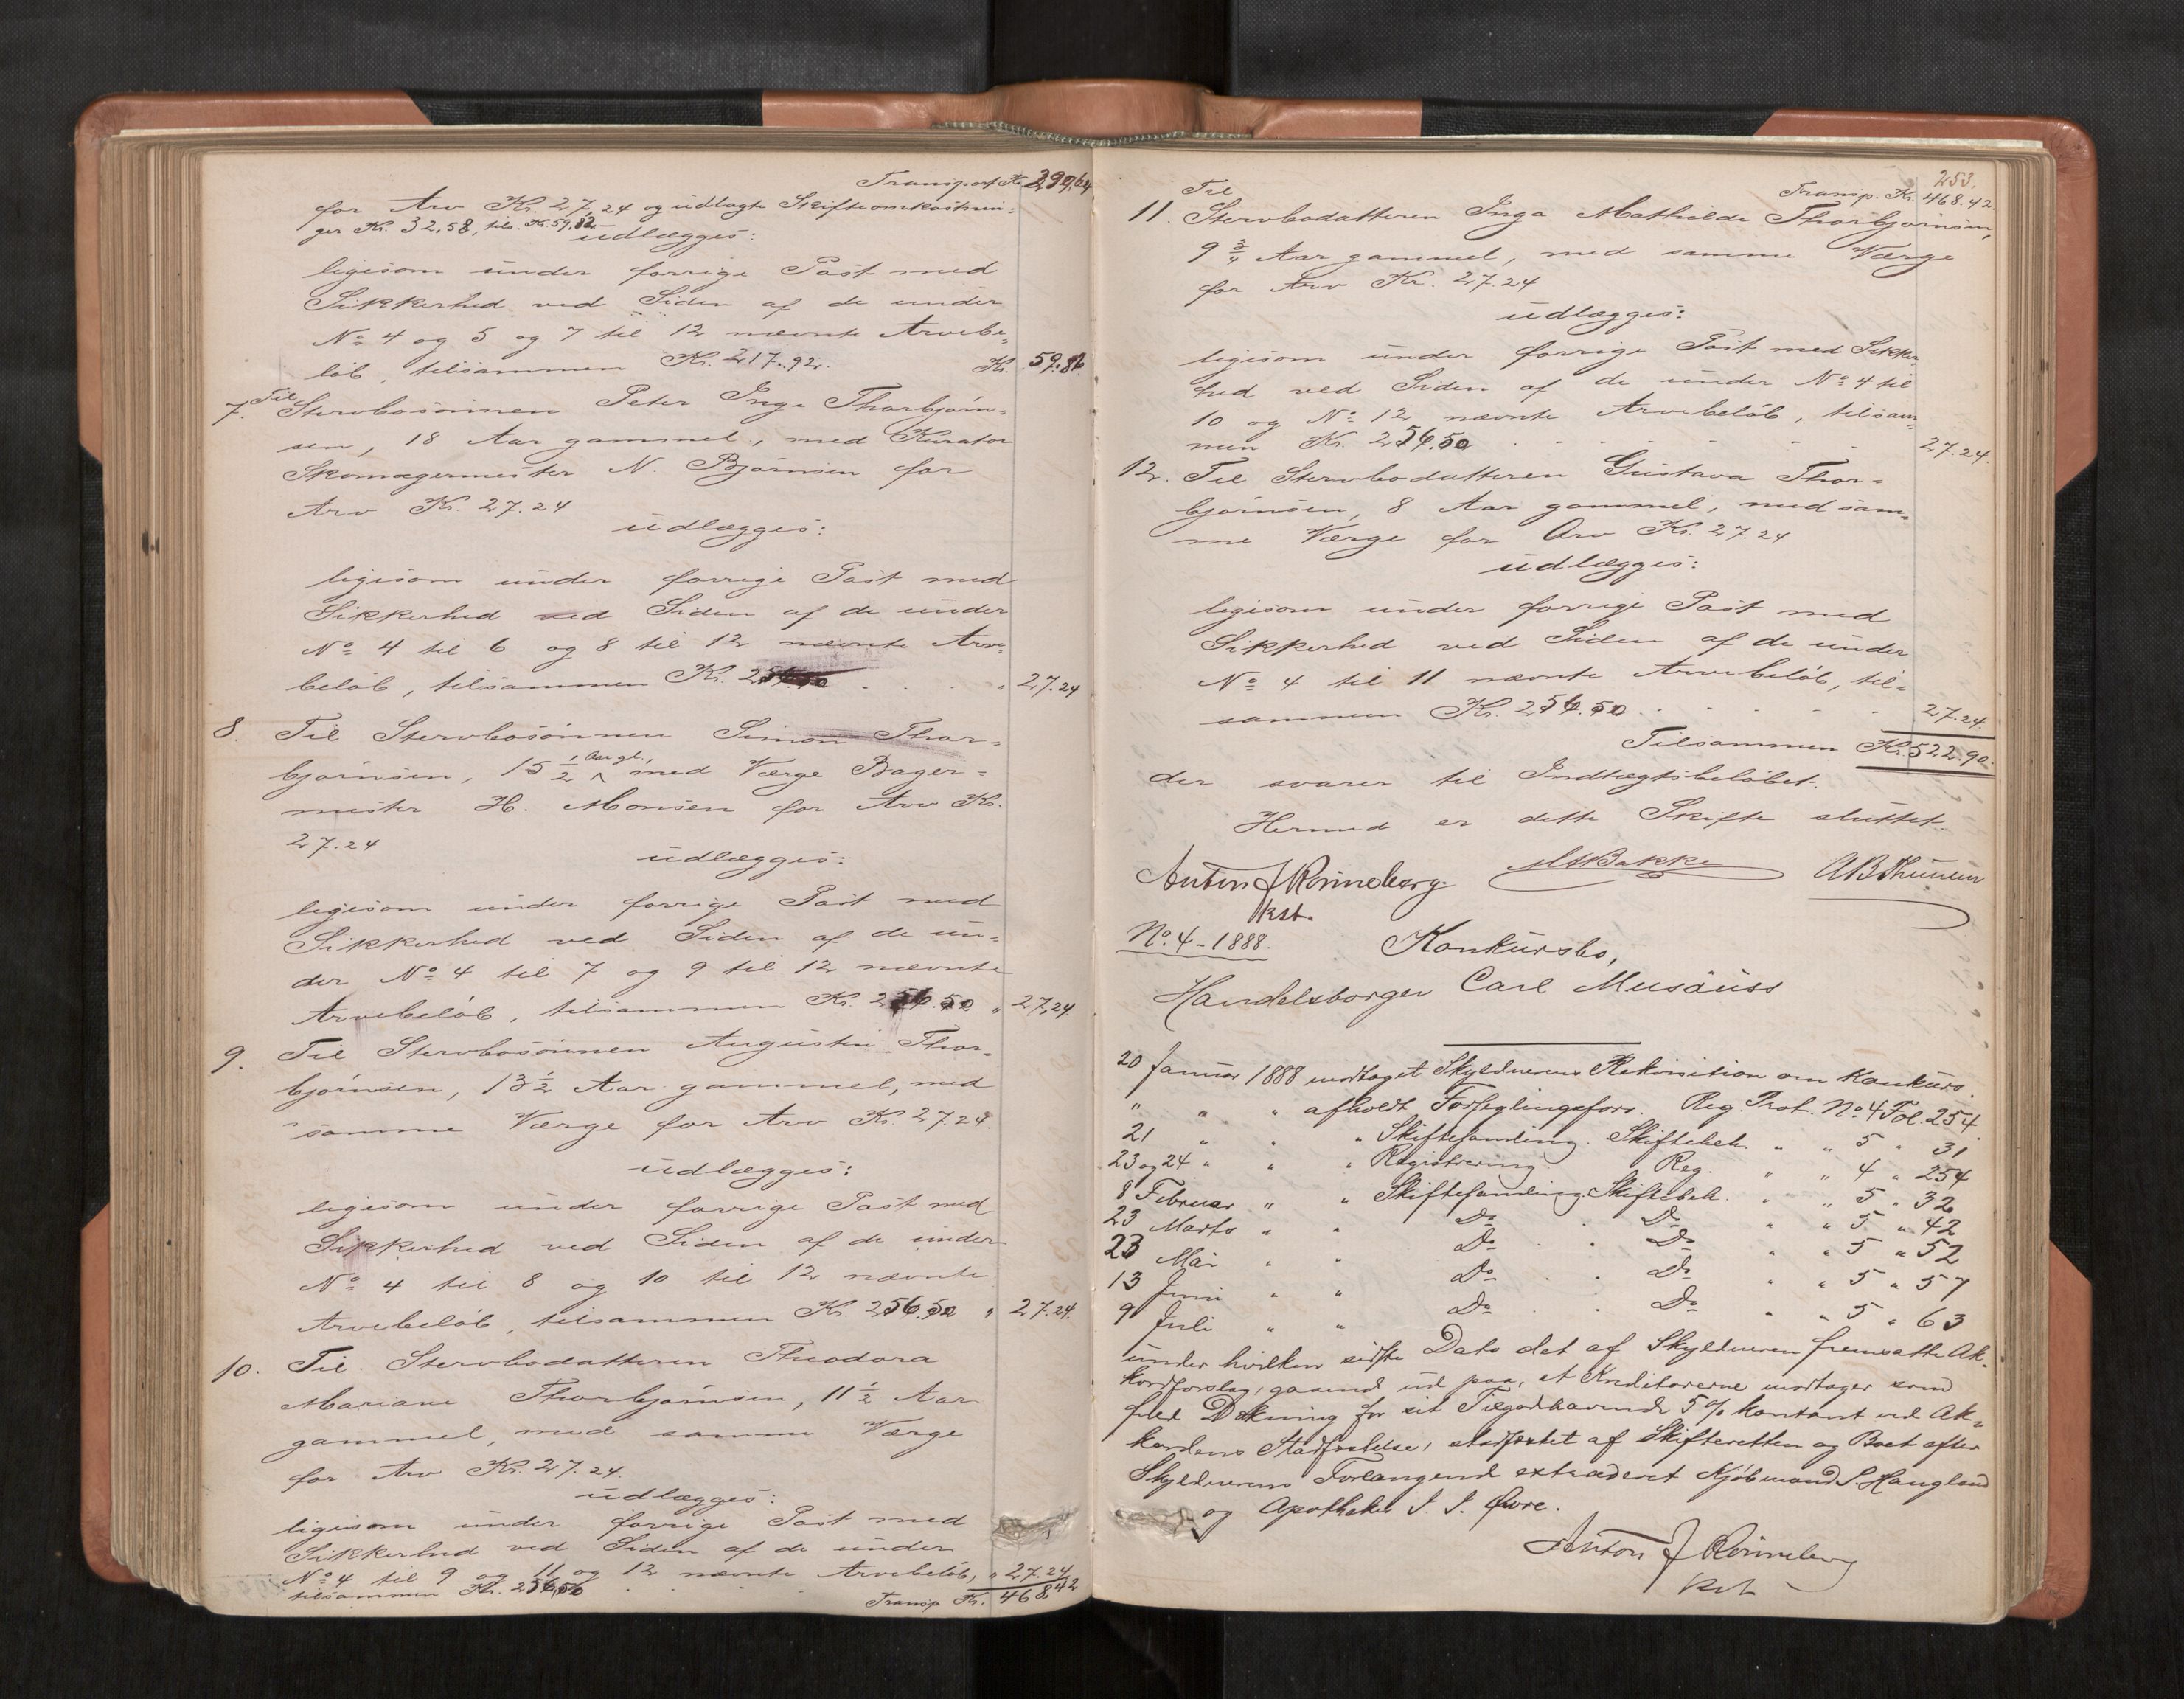 Transport Kr. 299,64
for Arv Kr. 27,24 og udlagte Skifteomkostnin-
ger Kr. 32,58, tils. Kr. 59,82
udlægges:
ligesom under forrige Post med
Sikkerhed ved Siden af de under
No 4 og 5 og 7 til 12 nævnte Arvebe-
løb, tilsammen Kr. 217.92. Kr. 59.82
7. Til Stervbosønnen Peter Inge Thorbjørn-
sen, 18 Aar gammel, med Kurator
Skomagermester N. Bjørnsen for
Arv Kr. 27.24
udlægges:
ligesom under forrige Post med
Sikkerhed ved Siden af de under
No 4 til 6 og 8 til 12 nævnte Arve-
beløb, tilsammen Kr. 256.50 . . . . " 27.24
8. Til Stervbosønnen Simon Thor-
bjørnsen, 15 1/2 Aar gl., med Værge Bager-
mester H. Monsen for Arv Kr.
27.24
udlægges:
ligesom under forrige Post med
Sikkerhed ved Siden af de un-
der No 4 til 7 og 9 til 12 nævnte
Arvebeløb, tilsammen Kr. 256.50 " 27,24
9. Til Stervbosønnen Augustin Thor-
bjørnsen, 13 1/2 Aar gammel, med
samme Værge for Arv Kr. 27.24.
udlægges:
ligesom under forrige Post med
Sikkerhed ved Siden af de under
No 4 til 8 og 10 til 12 nævnte
Arvebeløb, tilsammen Kr. 256.50 " 27.24.
10. Til Stervbodatteren Theodora
Mariane Thorbjørnsen, 11 1/2 Aar
gammel, med samme Værge
for Arv Kr. 27.24.
udlægges:
ligesom under forrige Post med
Sikkerhed ved Siden af de under
No 4 til 9 og 11 og 12 nævnte Arvebeløb, " 27.24
tilsammen Kr. 256,50 . . . Transp Kr. 468.42
253.
Transp. Kr. 468.42
11. Til Stervbodatteren Inga Mathilde Thorbjørnsen,
9 3/4 Aar gammel, med samme Værge
for Arv Kr. 27.24
udlægges:
ligesom under forrige Post med Sikker-
hed ved Siden af de under No 4 til
10 og No 12 nævnte Arvebeløb, tilsam-
men Kr. 256.50 . . . . . . 27.24.
12. Til Stervbodatteren Gustava Thor-
bjørnsen, 8 Aar gammel, med sam-
me Værge for Arv Kr. 27.24
udlægges:
ligesom under forrige Post med
Sikkerhed ved Siden af de under
No 4 til 11 nævnte Arvebeløb, til-
sammen Kr. 256.50 . . . . . 27.24.
Tilsammen Kr. 522.90.
der svarer til Indtægtsbeløbet.
Hermed er dette Skifte sluttet.
Anton J Rønneberg. Bakke
kst.
No. 4 - 1888. Konkursbo,
Handelsborger Carl Musäuss
20 Januar 1888 modtaget Skyldnerens Rekvisition om Konkurs.
" " " afholdt Forseglingsforr. Reg. Prot. No. 4 Fol. 254.
21 " " " Skiftesamling. Skiftebeh. " " 5 " 31
23 og 24 " " " Registrering. Reg. " " 4 " 254
8 Februar " " Skiftesamling. Skiftebeh. " " 5 " 32
23 Marts " " Do . Do " " 5 " 42
23 Mai " " Do . . Do " " 5 " 52
13 Juni " " Do . . Do " " 5 " 57
9 Juli " " Do . . Do " " 5 " 63
under hvilken sidste Dato det af Skyldneren fremsatte Ak-
kordforslag, gaaende ud paa, at Kreditorerne modtager som
fuld Dækning for sit Tilgodehavende 5 % kontant ved Ak-
kordens Stadfæstelse, stadfæstet af Skifteretten og Boet efter
Skyldnerens Forlangende extraderet Kjøbmand S. Haugland
og Apotheker J. J. Øvre.
Anton J Rønneberg
kst